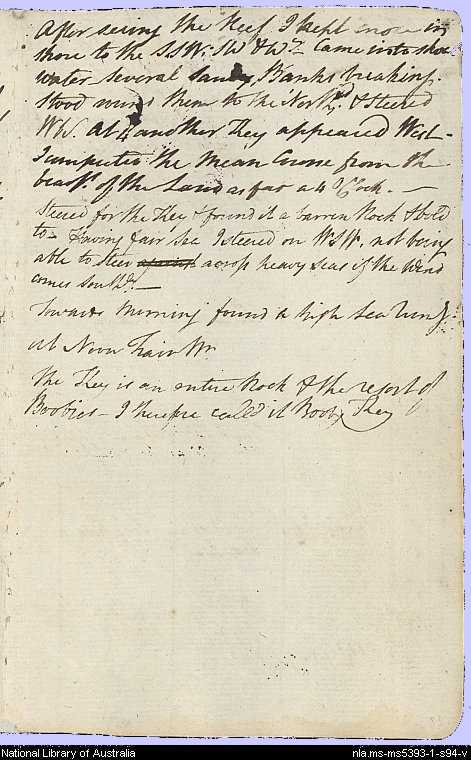 After seeing the Reef I kept more in
shore to the SSW. SW & W. Came into shoa
water several sandy Banks breaking.
Stood round them to the North & Steered
WbS. At 4 another Key appeared West-
I computed the mean Course from the
bear.gs of the Land as far as 4 oClock. —
Steered for the Key & found it a barren Rock & bold
to - Having fair Sea I steered on WSW. not being
able to steer against across heavy seas if the Wind
comes South.d —
Towards Morning found a high Sea run.g.
at Noon Fair Wr
The Key is an entire Rock & the resort of
Boobies - I therefore called it Booby Key
National Library of Australia
nla.ms-ms5393-1-s94-v